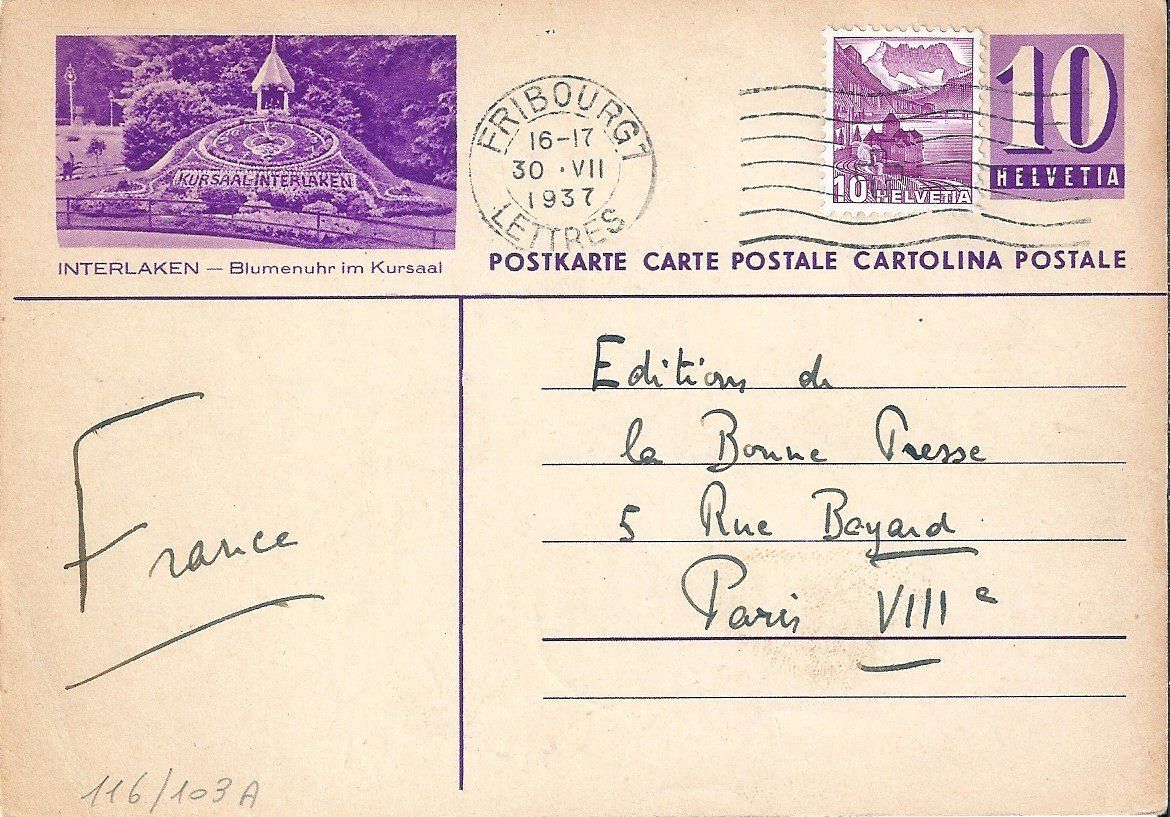 KURSAAL INTERLAKEN
INTERLAKEN — Blumenuhr im Kursaal
FRIBOURG 1
16-17
30 · VII
1937
LETTRES
10 HELVETIA
10
HELVETIA
POSTKARTE CARTE POSTALE CARTOLINA POSTALE
France
Editions de
la Bonne Presse
5 Rue Bayard
Paris VIIIe
116/103A